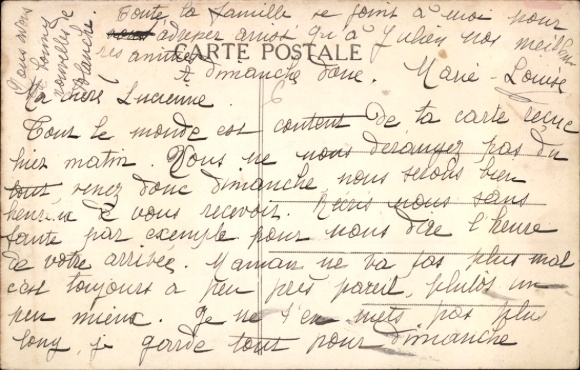 Ma chère Lucienne.
Tout le monde est content de ta carte reçue
hier matin. Vous ne nous dérangez pas du
tout, venez donc dimanche nous serons bien
heureux de vous recevoir. Ecris nous sans
faute par exemple pour nous dire l'heure
de votre arrivée. Maman ne va pas plus mal
c'est toujours à peu près pareil, plutôt un
peu mieux. Je ne t'en mets pas plus
long, je garde tout pour dimanche
Toute la famille se joint à moi pour
adresser ainsi qu'à Julien nos meilleu
res amitiés
CARTE POSTALE
À dimanche donc. Marie-Louise
Nous avons
de bonnes
nouvelles de
Blanche.